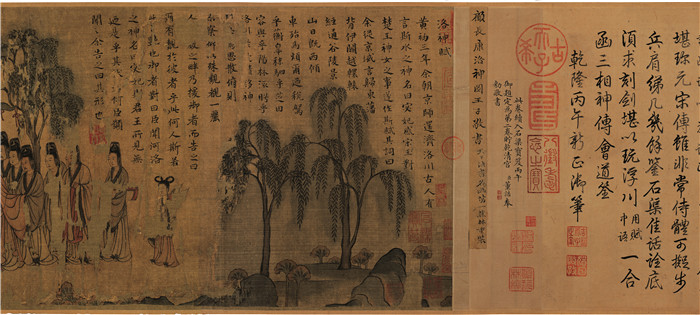 堪弥元宋傳雖非常侍體可擬步
兵肩綈几幾餘鑒石渠佳話詮底
須求刻劍堪以玩浮川用賦中語一合
函三相神傳會道筌
乾隆丙午新正御筆
古稀天子
壽
八徵耄念之寶
此卷續入石渠寶笈丙午
御題定為第二卷
臣董誥奉
勅敬書
顧長康洛神圖
洛神賦
黃初三年余朝京師還濟洛川古人有
言斯水之神名曰宓妃感宋玉對
楚王神女之事遂作斯賦其詞曰
余從京域言歸東藩
背伊闕越轘轅
經通谷陵景
山日既西傾
車殆馬煩爾迺稅駕
乎蘅皋秣駟乎芝田
容與乎陽林流眄乎
洛川於是精移神
駭忽焉思散俯則
未察仰以殊觀覩一麗
人之畔乃援御者而告之曰
爾有覿於彼者乎此何人斯若
此之豔也御者對曰臣聞河洛
之神名曰宓妃則君王所見
迺是乎其狀若何臣願
聞之余告之曰其形也